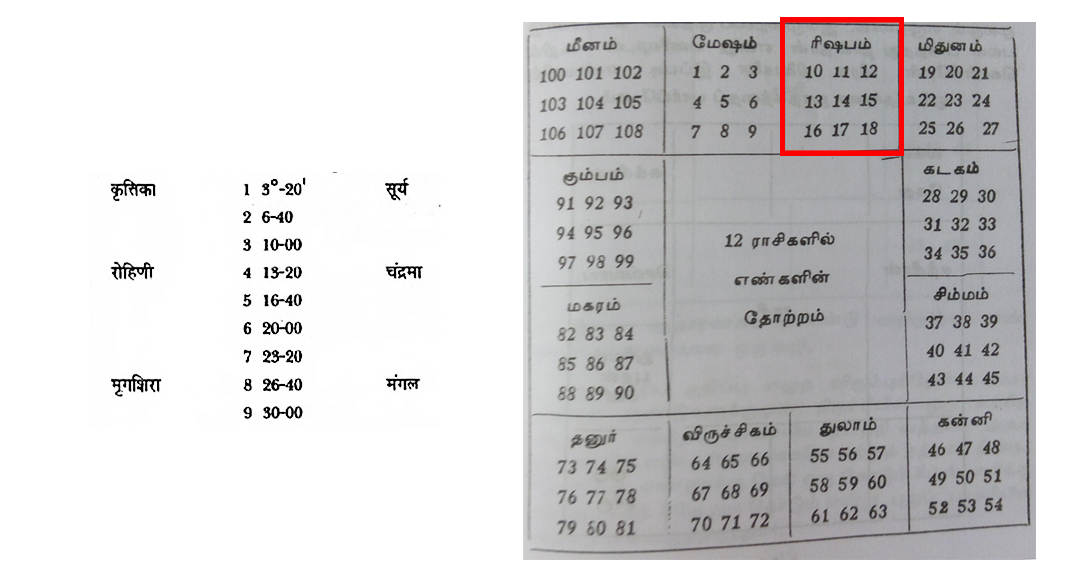 कृत्तिका 1 3°-20' सूर्य
2 6-40
3 10-00
रोहिणी 4 13-20 चंद्रमा
5 16-40
6 20-00
7 23-20
मृगशिरा 8 26-40 मंगल
9 30-00
மீனம் மேஷம் ரிஷபம் மிதுனம்
100 101 102 1 2 3 10 11 12 19 20 21
103 104 105 4 5 6 13 14 15 22 23 24
106 107 108 7 8 9 16 17 18 25 26 27
கும்பம்
91 92 93
94 95 96
97 98 99
மகரம்
82 83 84
85 86 87
88 89 90
12 ராசிகளில்
எண்களின்
தோற்றம்
கடகம்
28 29 30
31 32 33
34 35 36
சிம்மம்
37 38 39
40 41 42
43 44 45
தனுர் விருச்சிகம் துலாம் கன்னி
73 74 75 64 65 66 55 56 57 46 47 48
76 77 78 67 68 69 58 59 60 49 50 51
79 80 81 70 71 72 61 62 63 52 53 54